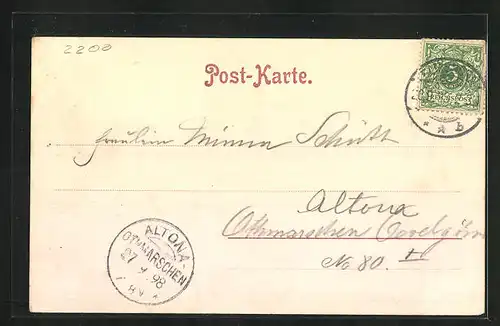 2200
Post-Karte.
Fräulein Minna Schütt
Altona
Othmarschen
No 80. I
ALTONA-
OTHMARSCHEN
27 9 98
* * b